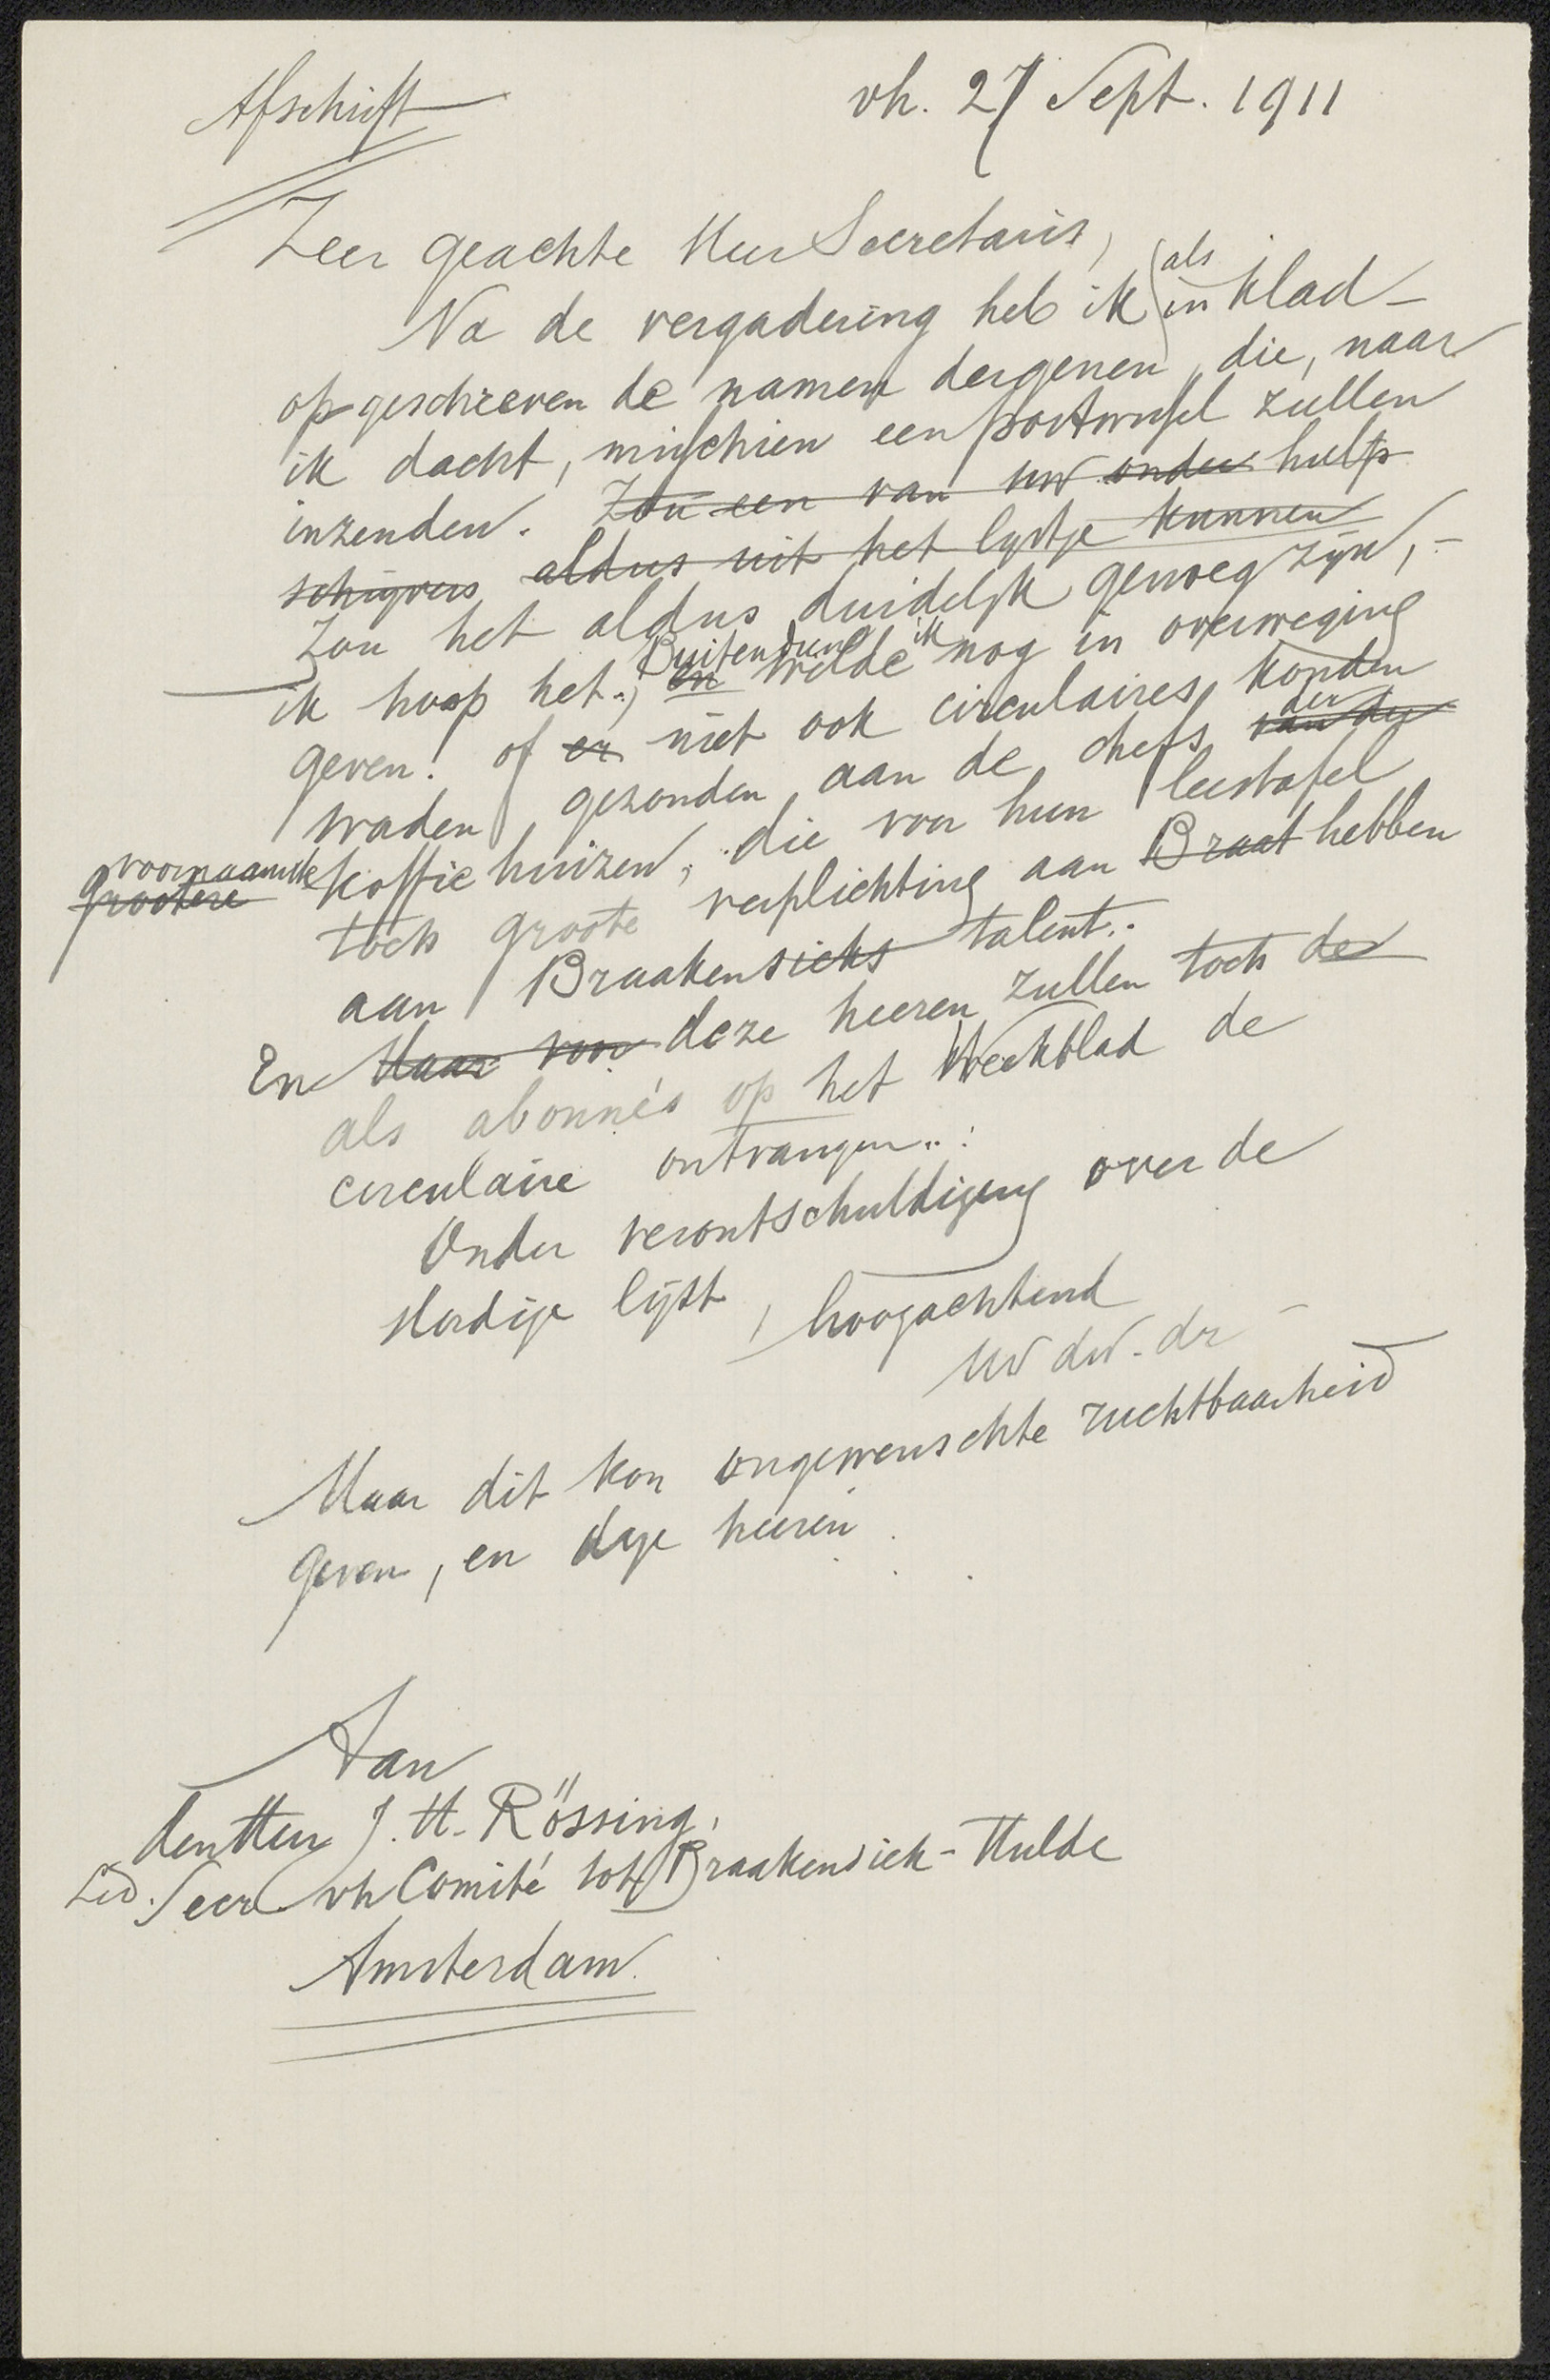 Afschrift
vh. 27 Sept. 1911
Zeer geachte Heer Secretaris,
Na de vergadering heb ik (als in klad -
opgeschreven de namen dergenen, die, naar
ik dacht, misschien een postwissel zullen
inzenden. Zou een van uw onder hulp
schrijvers aldus uit het lijstje kunnen
Zou het aldus duidelijk genoeg zijn, -
ik hoop het.; en Buitendien wilde ik nog in overweging
geven! of er niet ook circulaires konden
worden gezonden aan de chefs van de der
grootere voornaamste koffiehuizen, die voor hun leestafel
toch groote verplichting aan Braat hebben
aan Braakensieks talent..
En Maar voor deze heeren zullen toch de
als abonné's op het Weekblad de
circulaire ontvangen..
Onder verontschuldiging over de
slordige lijst, hoogachtend
Uw dw. dr
Maar dit kon ongewenschte ruchtbaarheid
geven, en deze heeren
Aan
den Heer J. H. Rössing,
Lid. Secr. vh Comité tot Braakensiek-Hulde
Amsterdam.